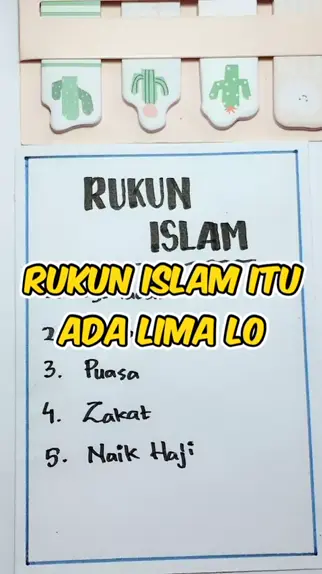 RUKUN
ISLAM
RUKUN ISLAM ITU
ADA LIMA LO
2
3. Puasa
4. Zakat
5. Naik Haji